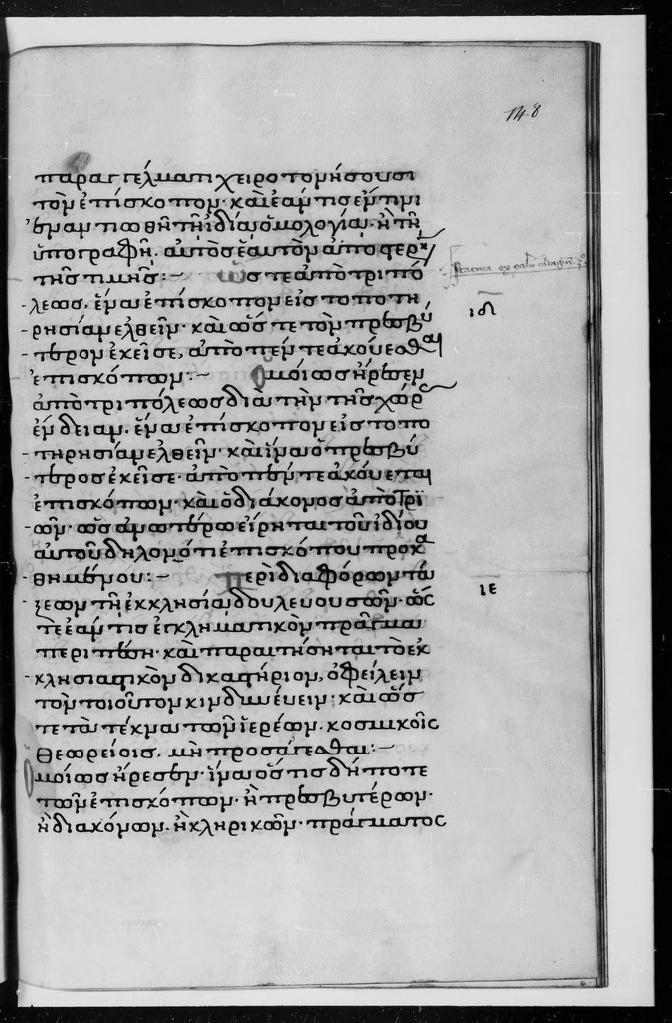 148
παραγγέλματι χειροτονήσουσι
τὸν ἐπίσκοπον· καὶ ἐάν τις ἐν τινι
ἐναντιωθῆ τῆ ἰδία ὁμολογία· ἢ τῆ
ὑπογραφῆ. αὐτὸς ἑαυτὸν ἀποστερ
τῆς τιμῆς:~ Ὥστε ἀπὸ τριπό
λεως, ἕνα ἐπίσκοπον εἰς τοποτη
ρησίαν ἐλθεῖν· καὶ ὥστε τὸν πρεσβύ
ιδ
τερον ἐκεῖσε, ἀπὸ πέντε ἀκούεσθαι
ἐπισκόπων:~ Ὁμοίως ἤρεσεν
ἀπὸ τριπόλεως διὰ τὴν τῆς χώρ
ἔνδειαν. ἕνα ἐπίσκοπον εἰς τοπο
τηρησίαν ἐλθεῖν· καὶ ἵνα ὁ πρεσβύ
τερος ἐκεῖσε· ἀπὸ πέντε ἀκούεται
ἐπισκόπων· καὶ ὁ διάκονος ἀπὸ τρι
ῶν· ὡς ἀνωτέρω εἴρηται τοῦ ἰδίου
αὐτοῦ δηλονότι ἐπισκόπου προκα
θημένου:~ Περὶ διαφόρων τά
ιε
ξεων τῆ ἐκκλησία δουλευουσῶν· ὥς
τε ἐάν τις ἐγκληματικὸν πράγμα
περιπέση· καὶ παραιτήσηται τὸ ἐκ
κλησιαστικὸν δικαστήριον, ὀφείλειν
τὸν τοιοῦτον κινδυνεύειν· καὶ ὥσ
τε τὰ τέκνα τῶν ἱερέων. κοσμικοῖς
θεωρείοις. μὴ προσάγεσθαι:~
Ὁμοίως ἤρεσεν· ἵνα ὅς τις δήποτε
τῶν ἐπισκόπων· ἢ πρεσβυτέρων·
ἢ διακόνων. ἢ κληρικῶν· πράγματος